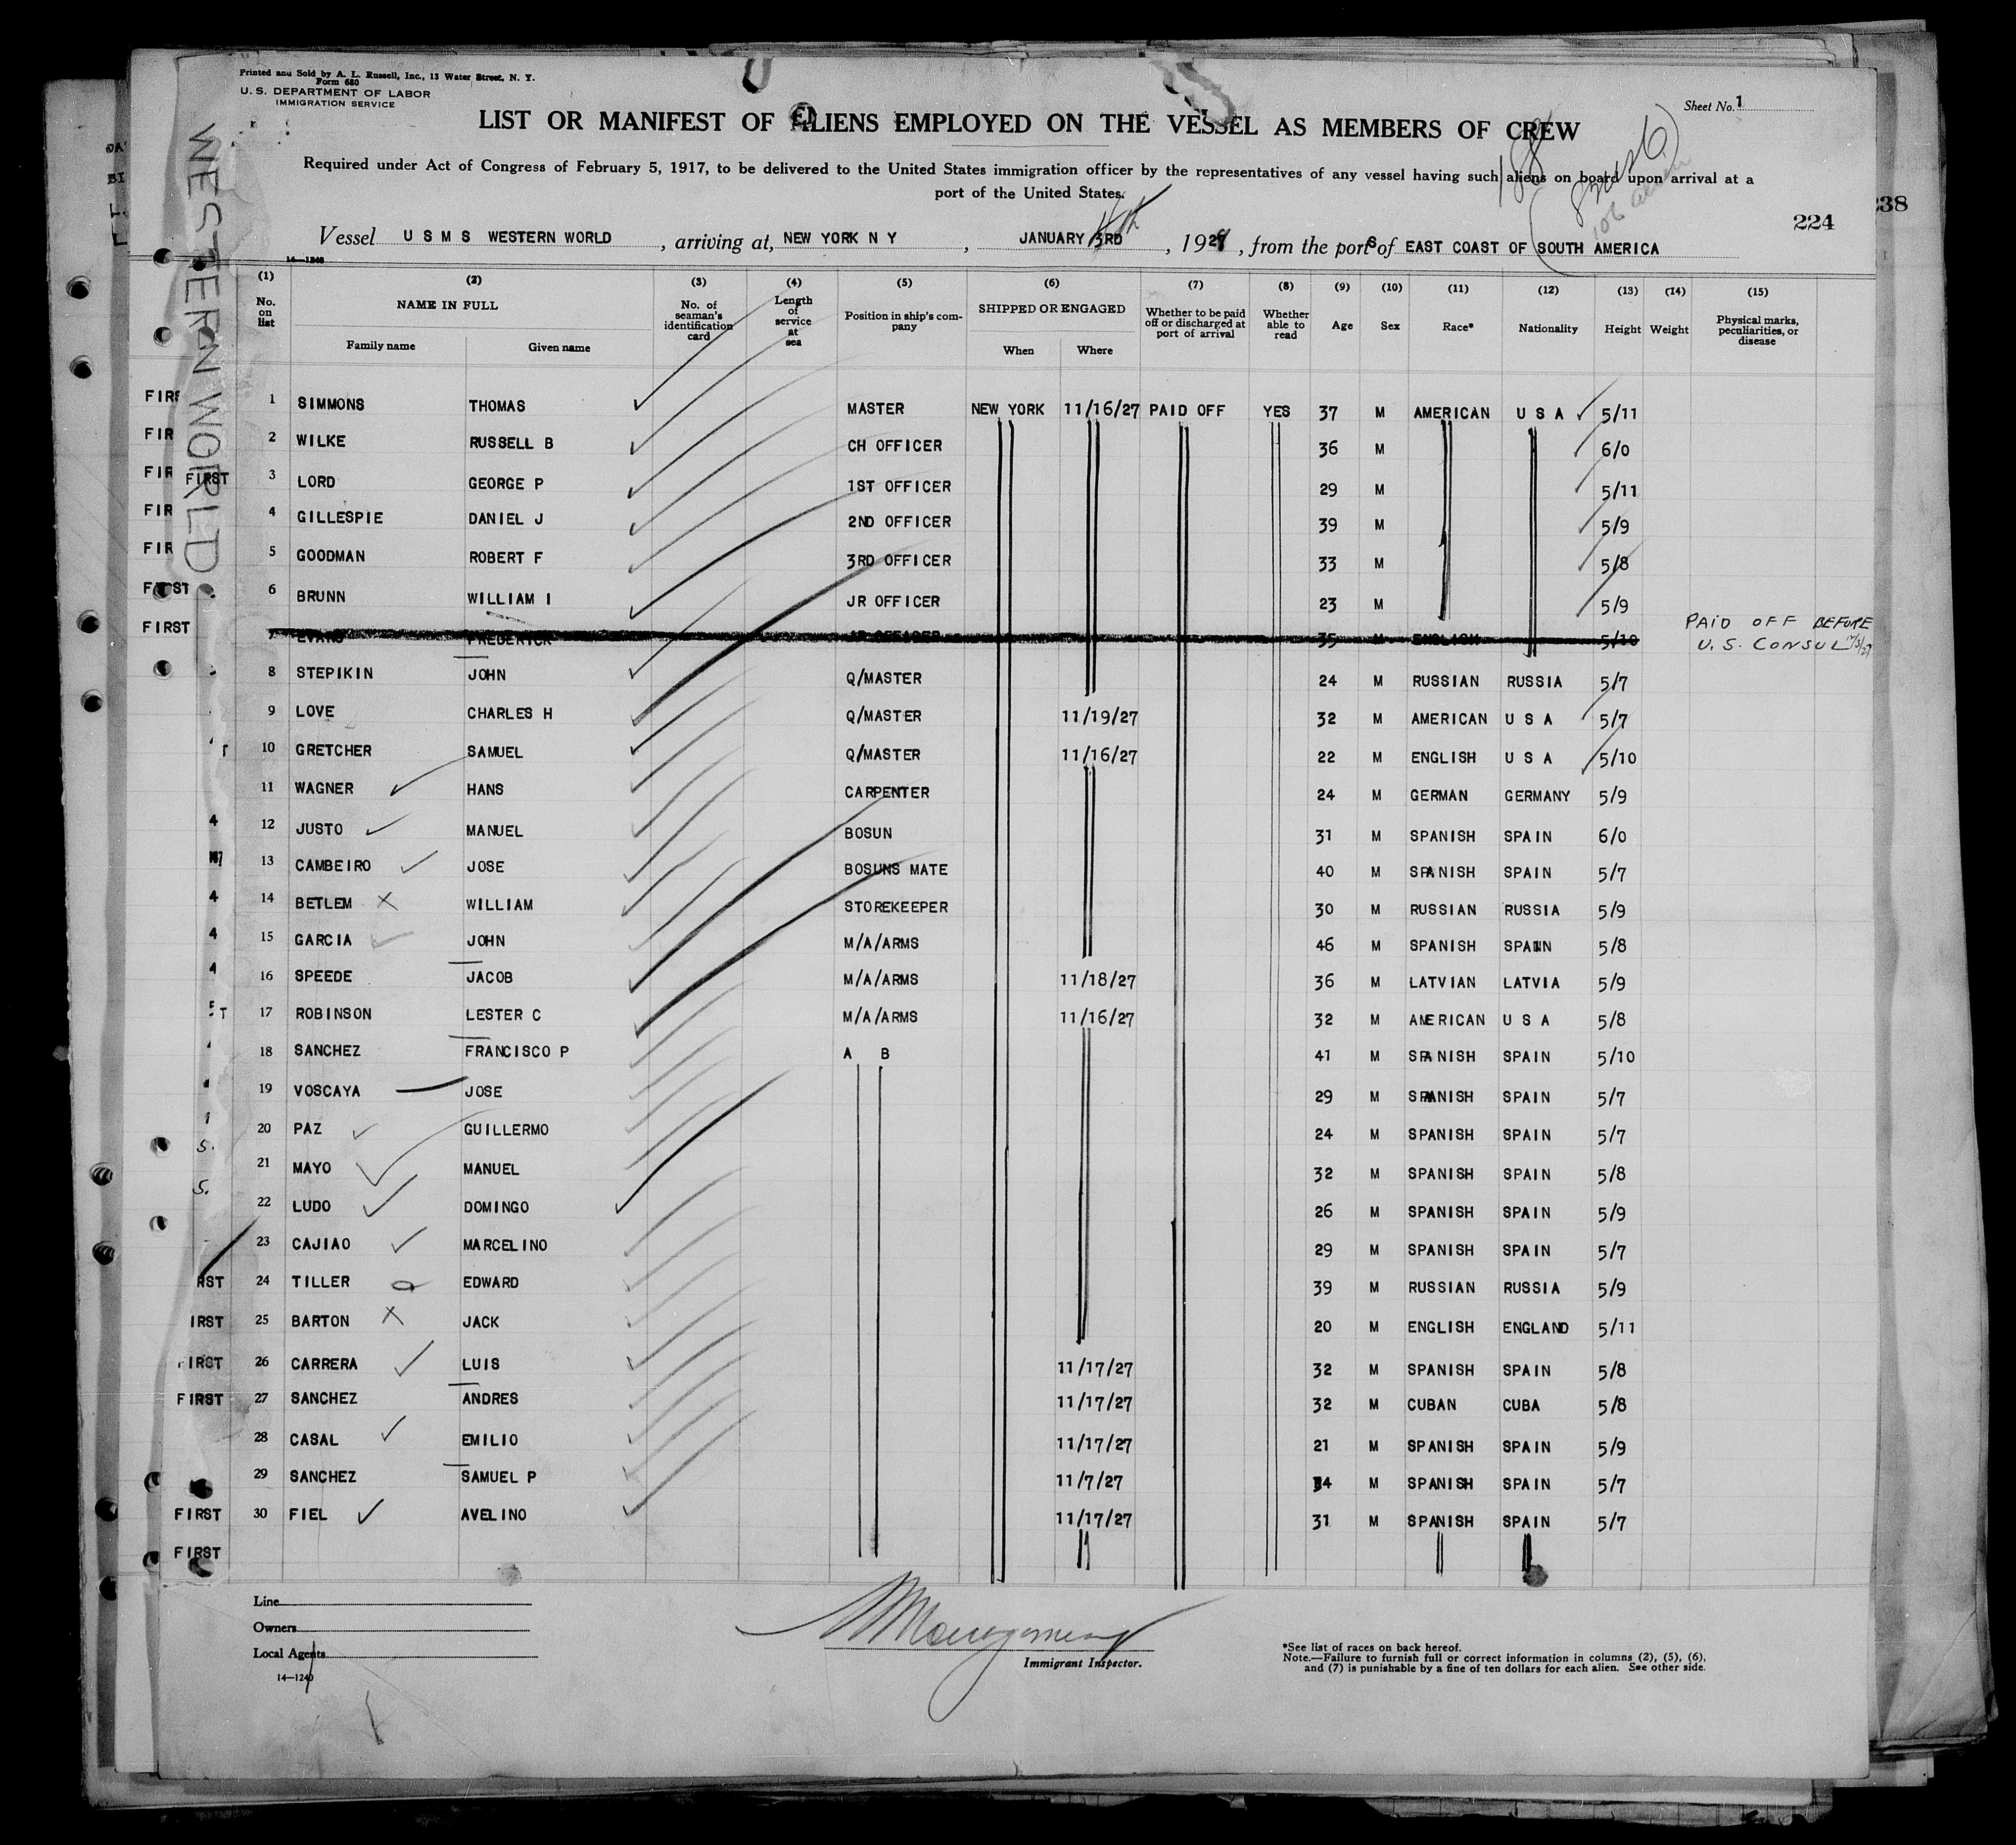 Printed and Sold by A. L. Russell, Inc., 13 Water Street, N. Y.
Form 680
U. S. DEPARTMENT OF LABOR
IMMIGRATION SERVICE
Sheet No. 1
LIST OR MANIFEST OF ALIENS EMPLOYED ON THE VESSEL AS MEMBERS OF CREW
Required under Act of Congress of February 5, 1917, to be delivered to the United States immigration officer by the representatives of any vessel having such aliens on board upon arrival at a
port of the United States.
224
238
WESTERN WORLD
Vessel U S M S WESTERN WORLD, arriving at, NEW YORK N Y, JANUARY 3RD 4th, 1928, from the ports of EAST COAST OF SOUTH AMERICA
14—1240
(1) (2) (3) (4) (5) (6) (7) (8) (9) (10) (11) (12) (13) (14) (15)
No. on list NAME IN FULL Family name Given name No. of seaman's identification card Length of service at sea Position in ship's company SHIPPED OR ENGAGED When Where Whether to be paid off or discharged at port of arrival Whether able to read Age Sex Race* Nationality Height Weight Physical marks, peculiarities, or disease
1 SIMMONS THOMAS MASTER NEW YORK 11/16/27 PAID OFF YES 37 M AMERICAN U S A 5/11
2 WILKE RUSSELL B CH OFFICER 36 M 6/0
3 LORD GEORGE P 1ST OFFICER 29 M 5/11
4 GILLESPIE DANIEL J 2ND OFFICER 39 M 5/9
5 GOODMAN ROBERT F 3RD OFFICER 33 M 5/8
6 BRUNN WILLIAM I JR OFFICER 23 M 5/9
7 EVANS FREDERICK JR OFFICER 35 M ENGLISH 5/10 PAID OFF BEFORE U. S. CONSUL 12/3/27
8 STEPIKIN JOHN Q/MASTER 24 M RUSSIAN RUSSIA 5/7
9 LOVE CHARLES H Q/MASTER 11/19/27 32 M AMERICAN U S A 5/7
10 GRETCHER SAMUEL Q/MASTER 11/16/27 22 M ENGLISH U S A 5/10
11 WAGNER HANS CARPENTER 24 M GERMAN GERMANY 5/9
12 JUSTO MANUEL BOSUN 31 M SPANISH SPAIN 6/0
13 CAMBEIRO JOSE BOSUNS MATE 40 M SPANISH SPAIN 5/7
14 BETLEM WILLIAM STOREKEEPER 30 M RUSSIAN RUSSIA 5/9
15 GARCIA JOHN M/A/ARMS 46 M SPANISH SPAIN 5/8
16 SPEEDE JACOB M/A/ARMS 11/18/27 36 M LATVIAN LATVIA 5/9
17 ROBINSON LESTER C M/A/ARMS 11/16/27 32 M AMERICAN U S A 5/8
18 SANCHEZ FRANCISCO P A B 41 M SPANISH SPAIN 5/10
19 VOSCAYA JOSE 29 M SPANISH SPAIN 5/7
20 PAZ GUILLERMO 24 M SPANISH SPAIN 5/7
21 MAYO MANUEL 32 M SPANISH SPAIN 5/8
22 LUDO DOMINGO 26 M SPANISH SPAIN 5/9
23 CAJIAO MARCELINO 29 M SPANISH SPAIN 5/7
24 TILLER EDWARD 39 M RUSSIAN RUSSIA 5/9
25 BARTON JACK 20 M ENGLISH ENGLAND 5/11
26 CARRERA LUIS 11/17/27 32 M SPANISH SPAIN 5/8
27 SANCHEZ ANDRES 11/17/27 32 M CUBAN CUBA 5/8
28 CASAL EMILIO 11/17/27 21 M SPANISH SPAIN 5/9
29 SANCHEZ SAMUEL P 11/7/27 34 M SPANISH SPAIN 5/7
30 FIEL AVELINO 11/17/27 31 M SPANISH SPAIN 5/7
Line
Owners
Local Agents
14—1240
Immigrant Inspector.
*See list of races on back hereof.
Note.—Failure to furnish full or correct information in columns (2), (5), (6),
and (7) is punishable by a fine of ten dollars for each alien. See other side.